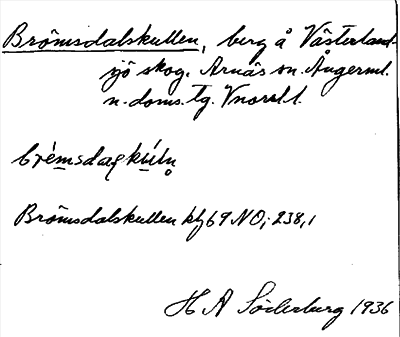 Brömsdalskullen, berg å Västerland-
sjö skog. Arnäs sn. Ångerml.
n. doms. tg. V norrl. l.
bré̱msdaɡkúln̥
Brömsdalskullen kbl 69 NO; 238,1
H A Söderburg 1936